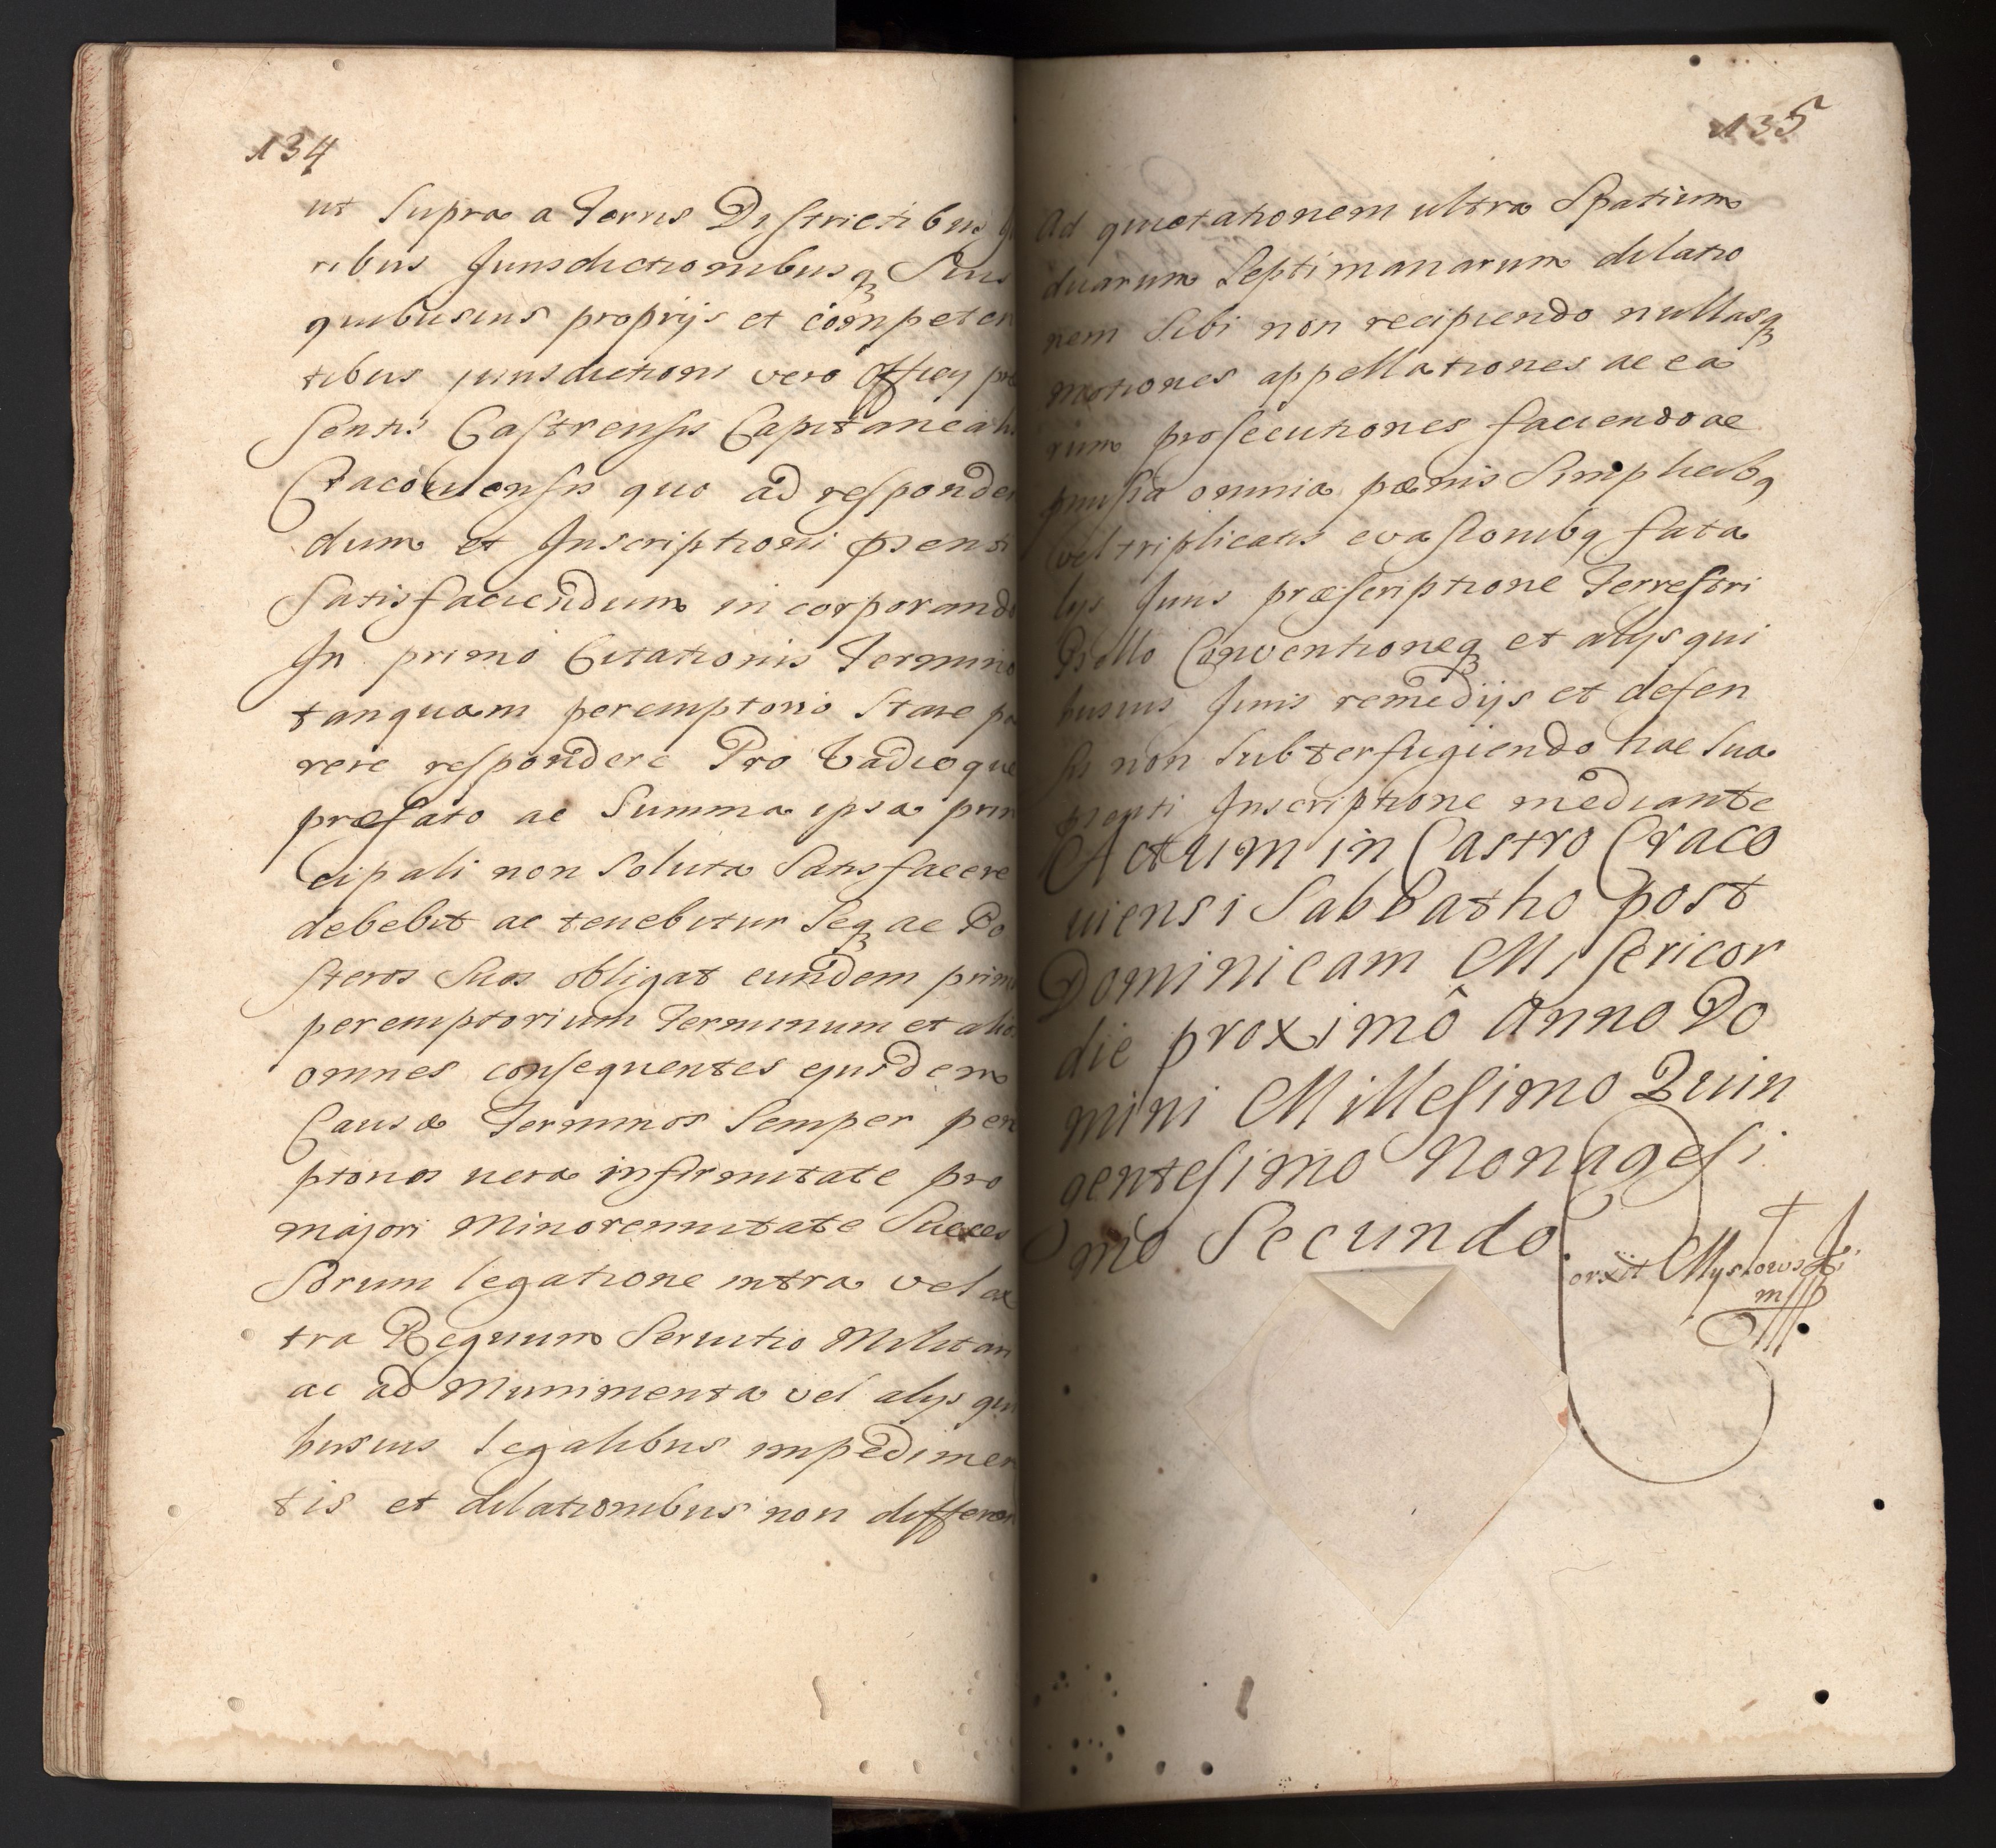 134
ut Supra a Terris Districtibus
ribus Jurisdictionibusq Suis
quibusuis proprijs et compete
tibus jurisdictioni vero Officij præ
sentis Castrensis Capitanealis
Cracouiensis quo ad responde
dum et Inscriptioni pñsenti
Satisfaciendum incorporando
In primo Citationis Termino
tanquam peremptorio Stare pa
rere respondere Pro Vadioque
præfato ac Summa ipsa prin
cipali non Soluta Satisfacere
debebit ac tenebitur Seq ac Po
steros Suos obligat eundem prim
peremptorium Terminum et alios
omnes consequentes ejusdem
Causæ Terminos Semper perem
ptorios uera infirmitate pro
majori Minorennitate Succes
Sorum legatione intra vel ex
tra Regnum Seruitio Militari
ac ad Munimenta vel alijs qui
busuis legalibus impedimen
tis et dilationibus non differen
135
Ad quietationem ultra Spatium
duarum Septimanarum dilatio
nem Sibi non recipiendo nullasq
motiones appellationes ac ea
rum prosecutiones faciendo ac
pmissa omnia pœnis Simplicibq
vel triplicatis euasionibq fata
lijs Juris præscriptione Terrestri
Bello Conventioneq et alijs qui
busuis Juris remedijs et defen
sis non Subterfugiendo hac Sua
pñsenti Inscriptione mediante
Actum in Castro Craco
uiensi Sabbatho post
Dominicam Misericor
die proximô Anno Do
mini Millesimo Quin
gentesimo Nonagesi
mo Secundo.